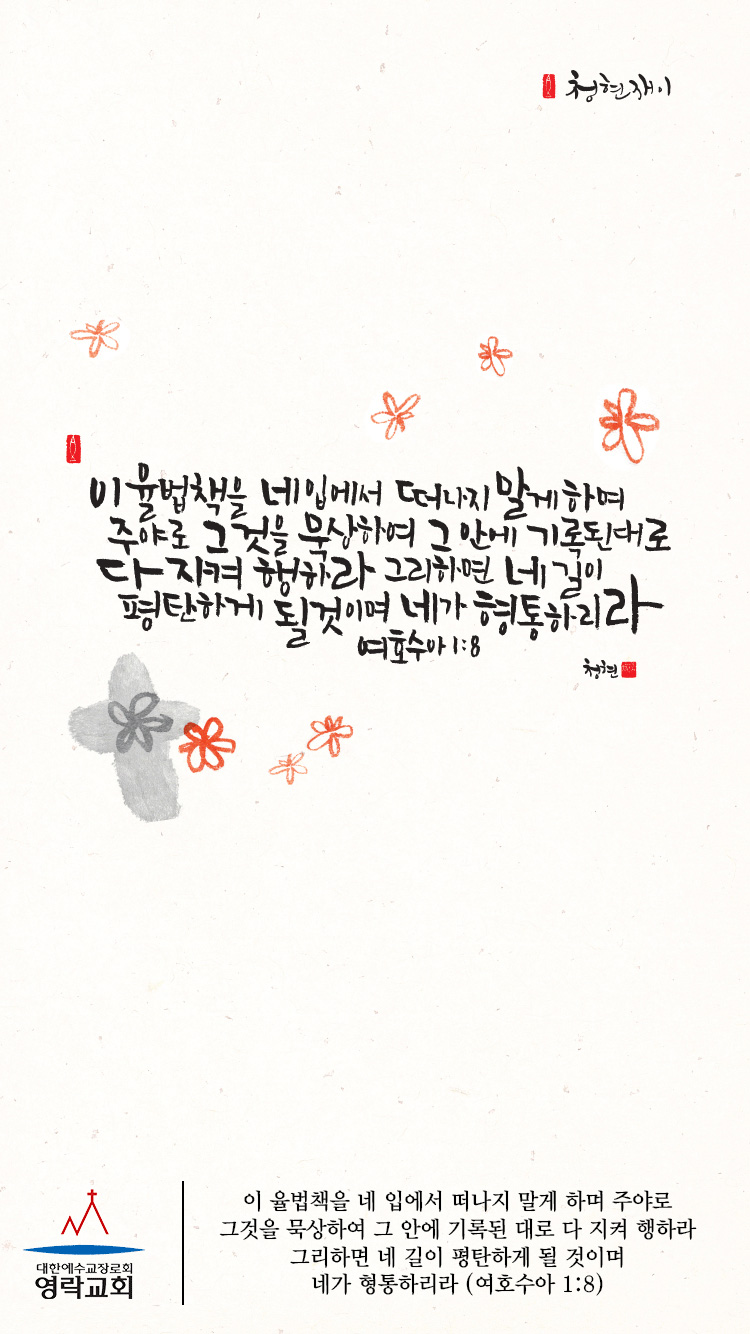 청현재이
이 율법책을 네 입에서 떠나지 말게 하며
주야로 그것을 묵상하여 그 안에 기록된대로
다 지켜 행하라 그리하면 네 길이
평탄하게 될것이며 네가 형통하리라
여호수아 1:8
청현
대한예수교장로회
영락교회
이 율법책을 네 입에서 떠나지 말게 하며 주야로
그것을 묵상하여 그 안에 기록된 대로 다 지켜 행하라
그리하면 네 길이 평탄하게 될 것이며
네가 형통하리라 (여호수아 1:8)